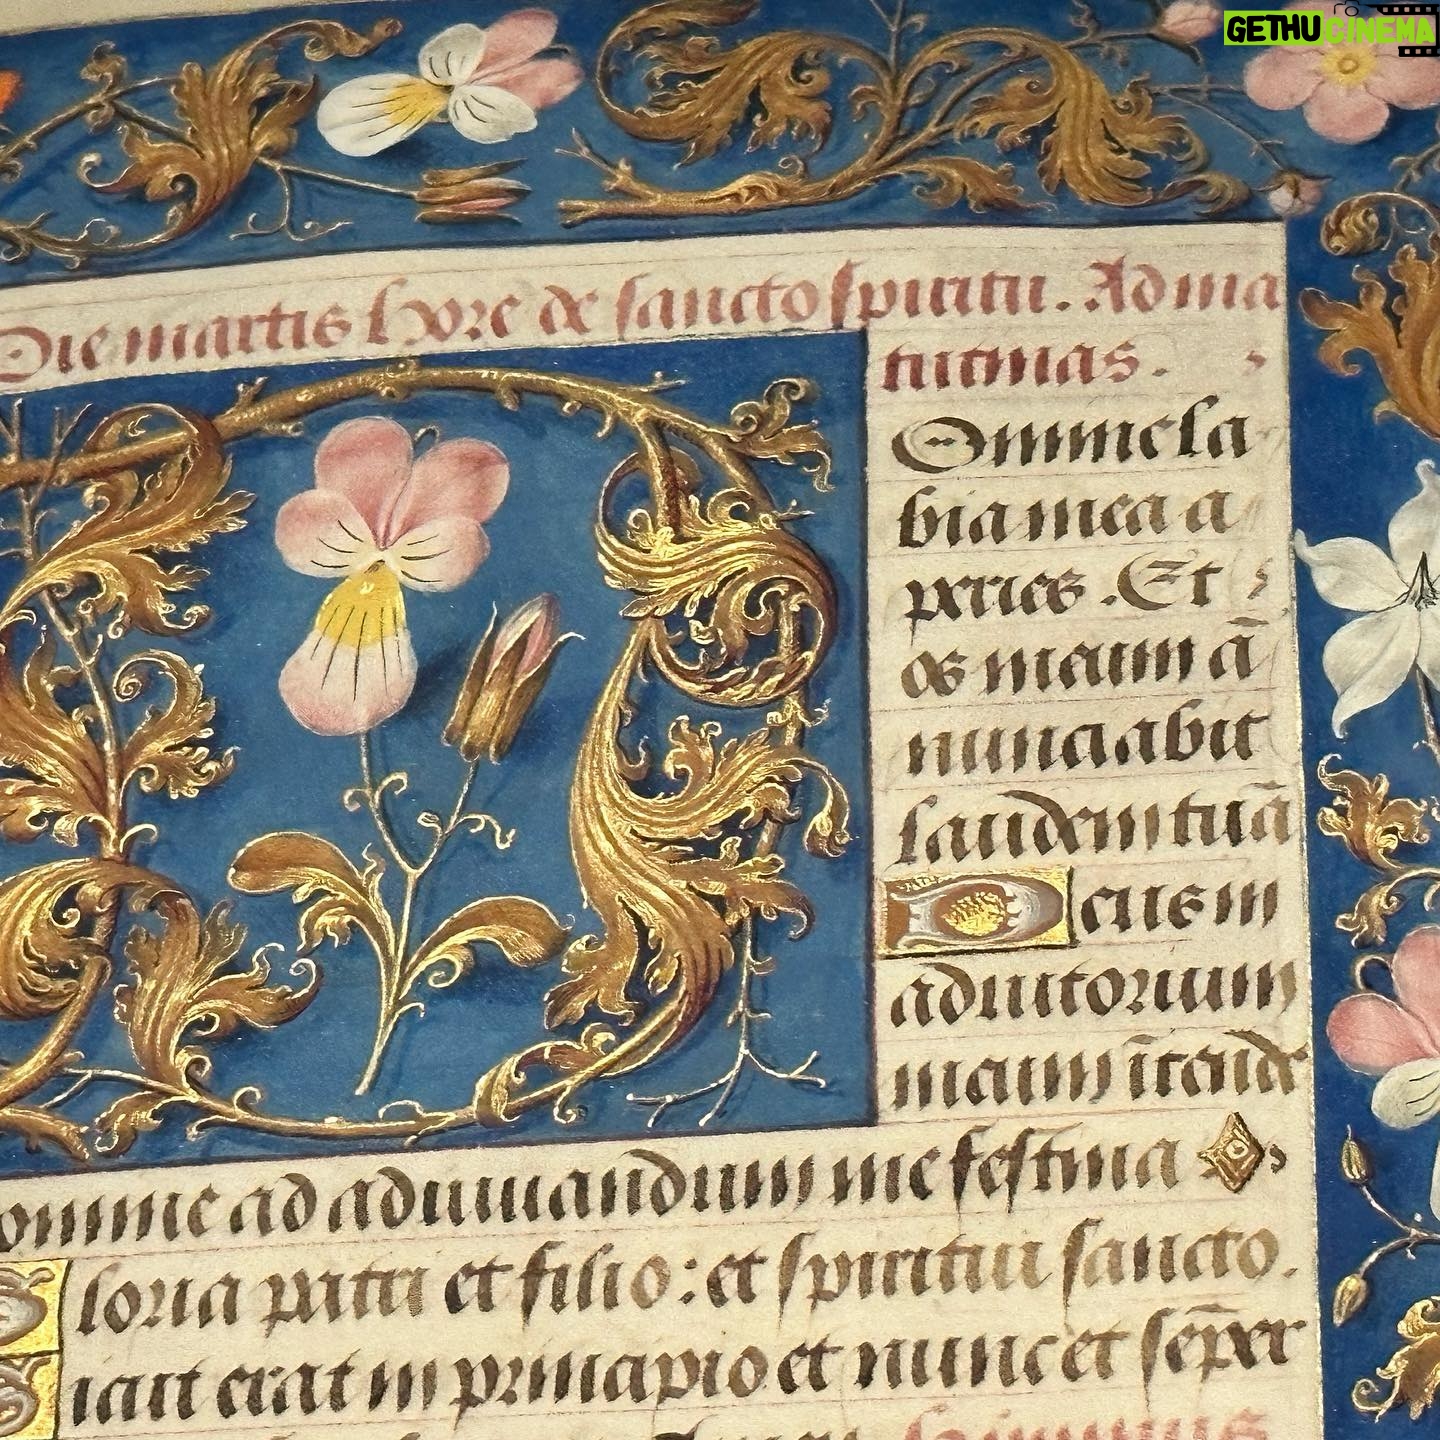 GETHU CINEMA
Die martis hore de sancto spiritu. Ad ma
tutinas.
Omine la
bia mea a
peries. Et
os meum ā
nunciabit
laudem tuā
eus in
adiutorium
meum ītende
omine ad adiuuandum me festina
loria patri et filio: et spiritui sancto.
icut erat in principio et nunc et sēper